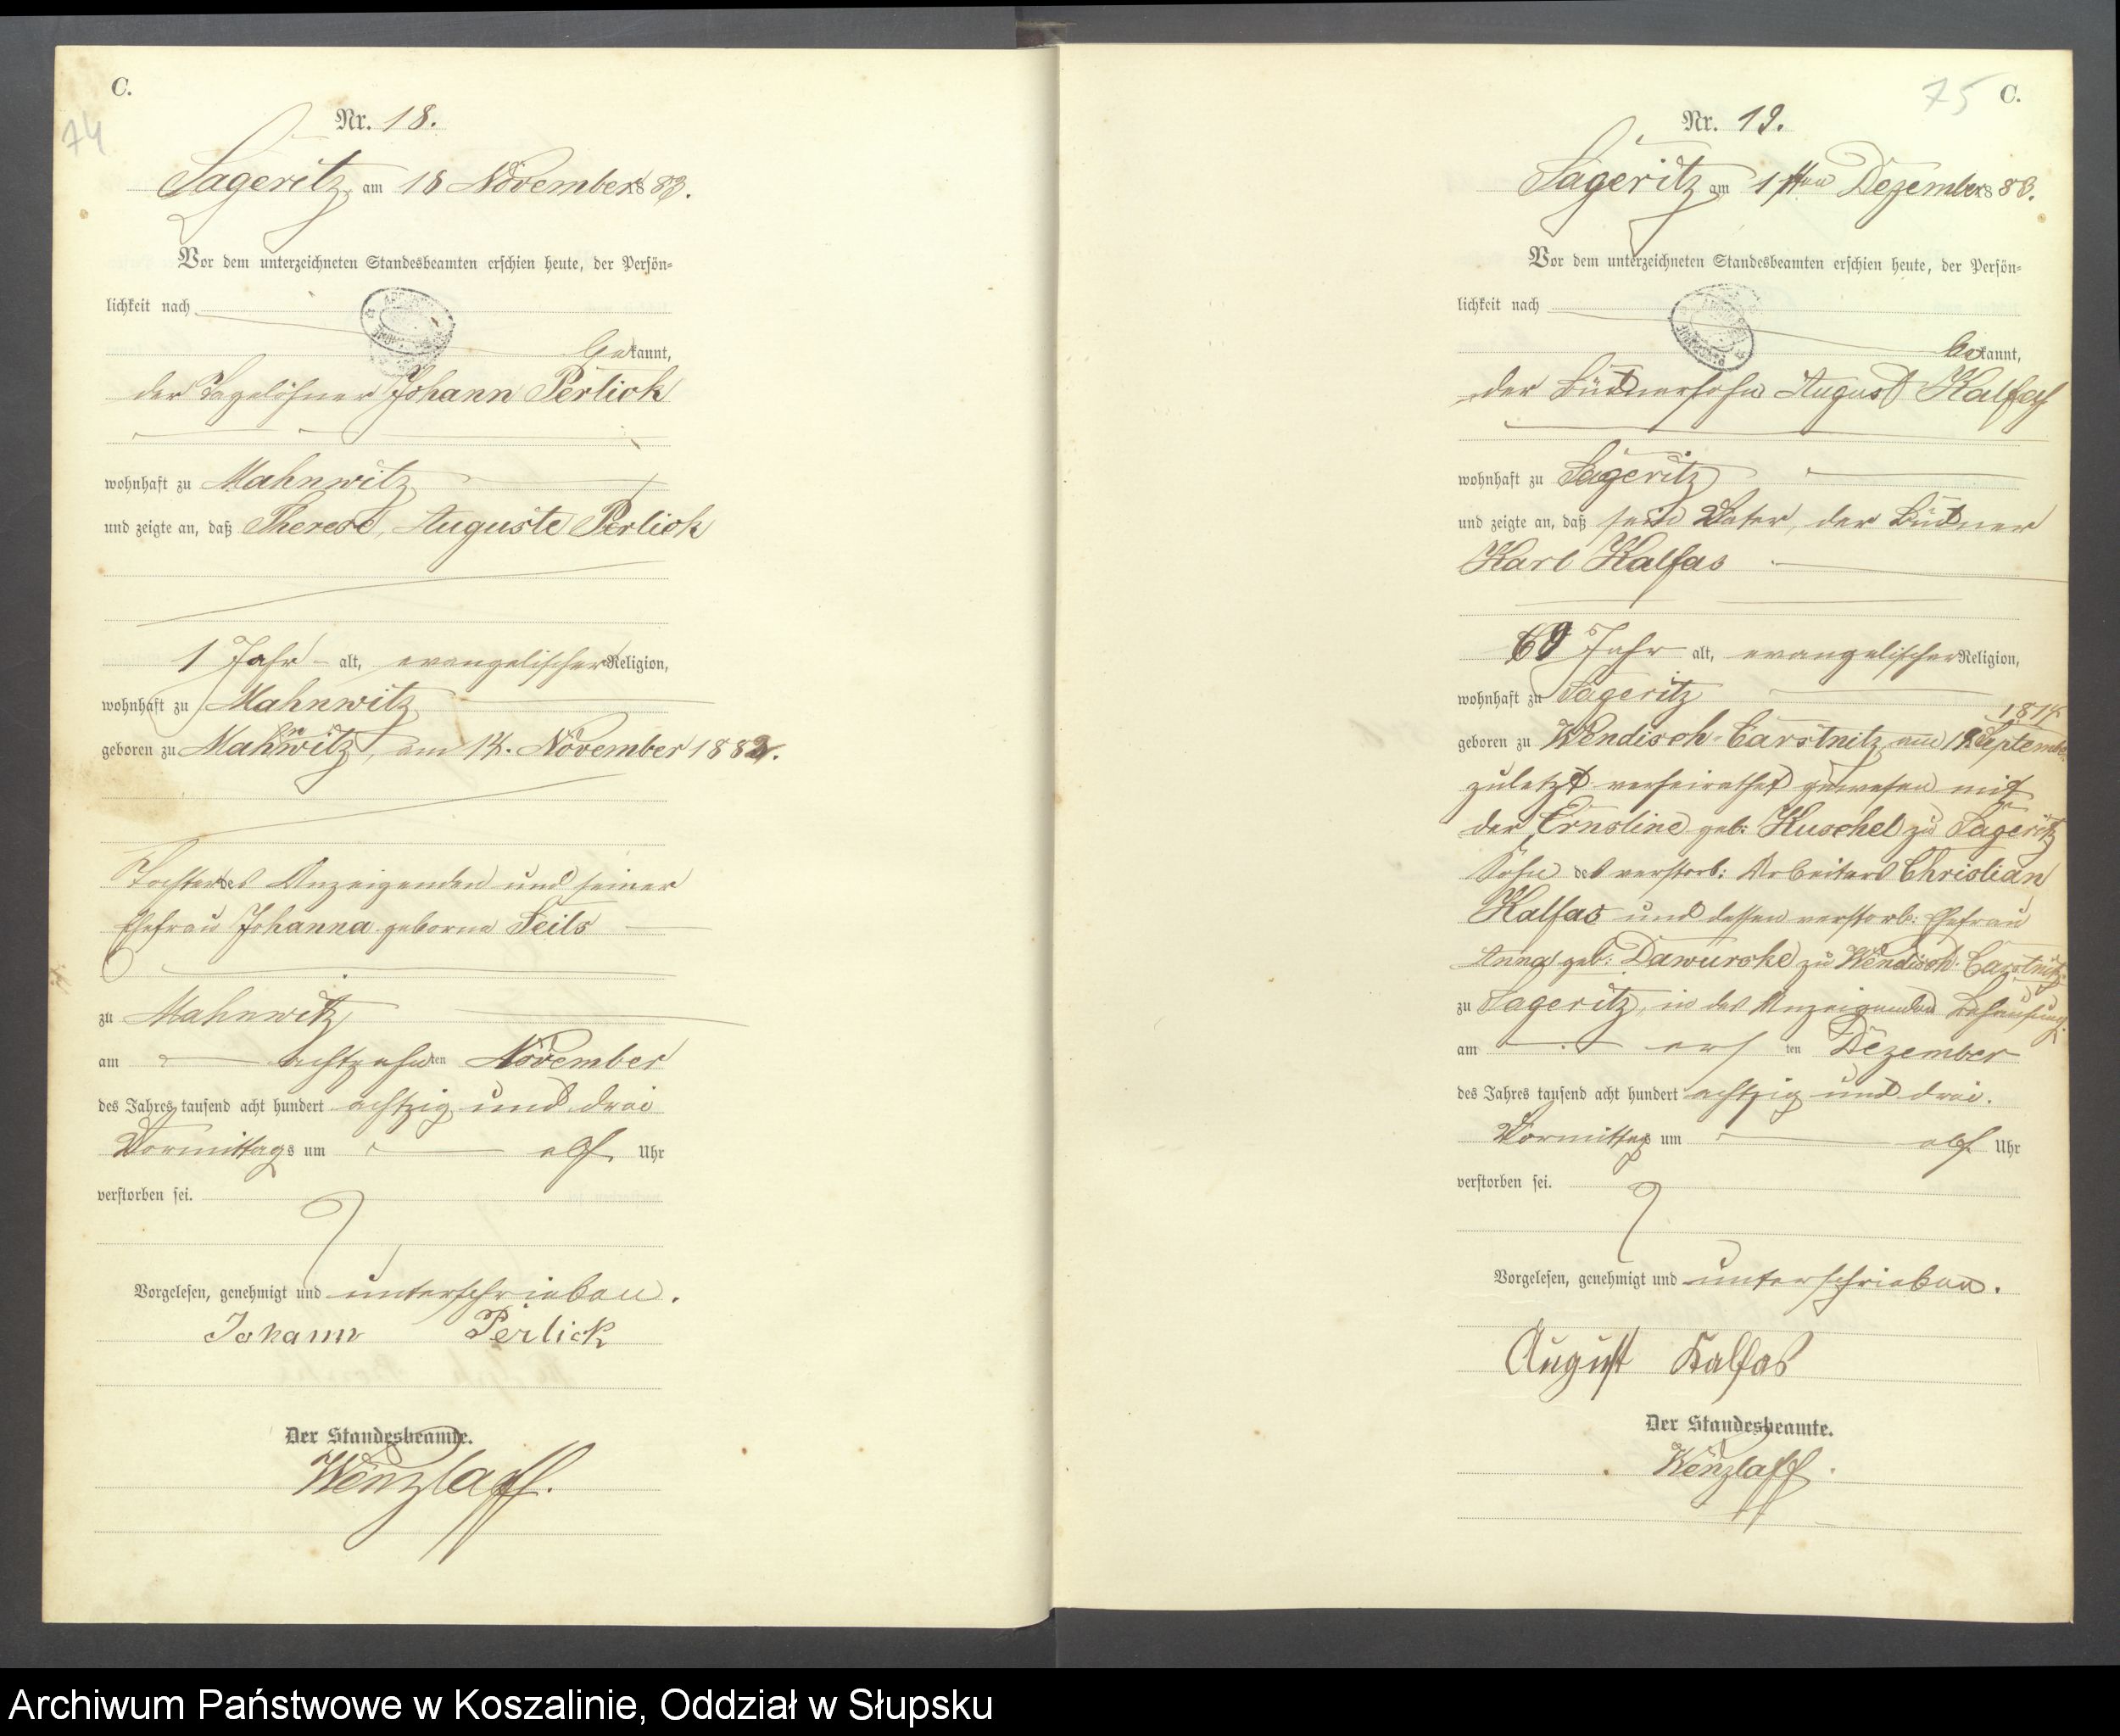 C.
74
Nr. 18.
Sageritz, am 18 November 1883.
Vor dem unterzeichneten Standesbeamten erschien heute, der Persön-
lichkeit nach
bekannt,
der Tagelöhner Johann Perlick
wohnhaft zu Mahnwitz
und zeigte an, daß Therese, Auguste Perlick
1 Jahr alt, evangelischer Religion,
wohnhaft zu Mahnwitz
geboren zu Mahnwitz, am 14. November 1882.
Tochter des Anzeigenden und seiner
Ehefrau Johanna geborne Teils
zu Mahnwitz
am achtzehnten November
des Jahres tausend acht hundert achtzig und drei
Vormittags um elf Uhr
verstorben sei.
Vorgelesen, genehmigt und unterschrieben.
Johann Perlick
Der Standesbeamte.
Wenzlaff.
75 C.
Nr. 19.
Sageritz am 1ten Dezember 1883.
Vor dem unterzeichneten Standesbeamten erschien heute, der Persön-
lichkeit nach
bekannt,
der Büdnersohn August Kalfas
wohnhaft zu Sageritz
und zeigte an, daß sein Vater, der Büdner
Karl Kalfas
69 Jahr alt, evangelischer Religion,
wohnhaft zu Sageritz
1814
geboren zu Wendisch-Carstnitz am 19. September
zuletzt verheirathet gewesen mit
der Ernstine geb: Kuschel zu Sageritz
Sohn des verstorb: Arbeiters Christian
Kalfas und dessen verstorb: Ehefrau
Anna geb: Dawurske zu Wendisch-Carstnitz
zu Sageritz, in des Anzeigenden Behausung
am ersten Dezember
des Jahres tausend acht hundert achtzig und drei.
Vormittags um elf Uhr
verstorben sei.
Vorgelesen, genehmigt und unterschrieben.
August Kalfas
Der Standesbeamte.
Wenzlaff.
Archiwum Państwowe w Koszalinie, Oddział w Słupsku